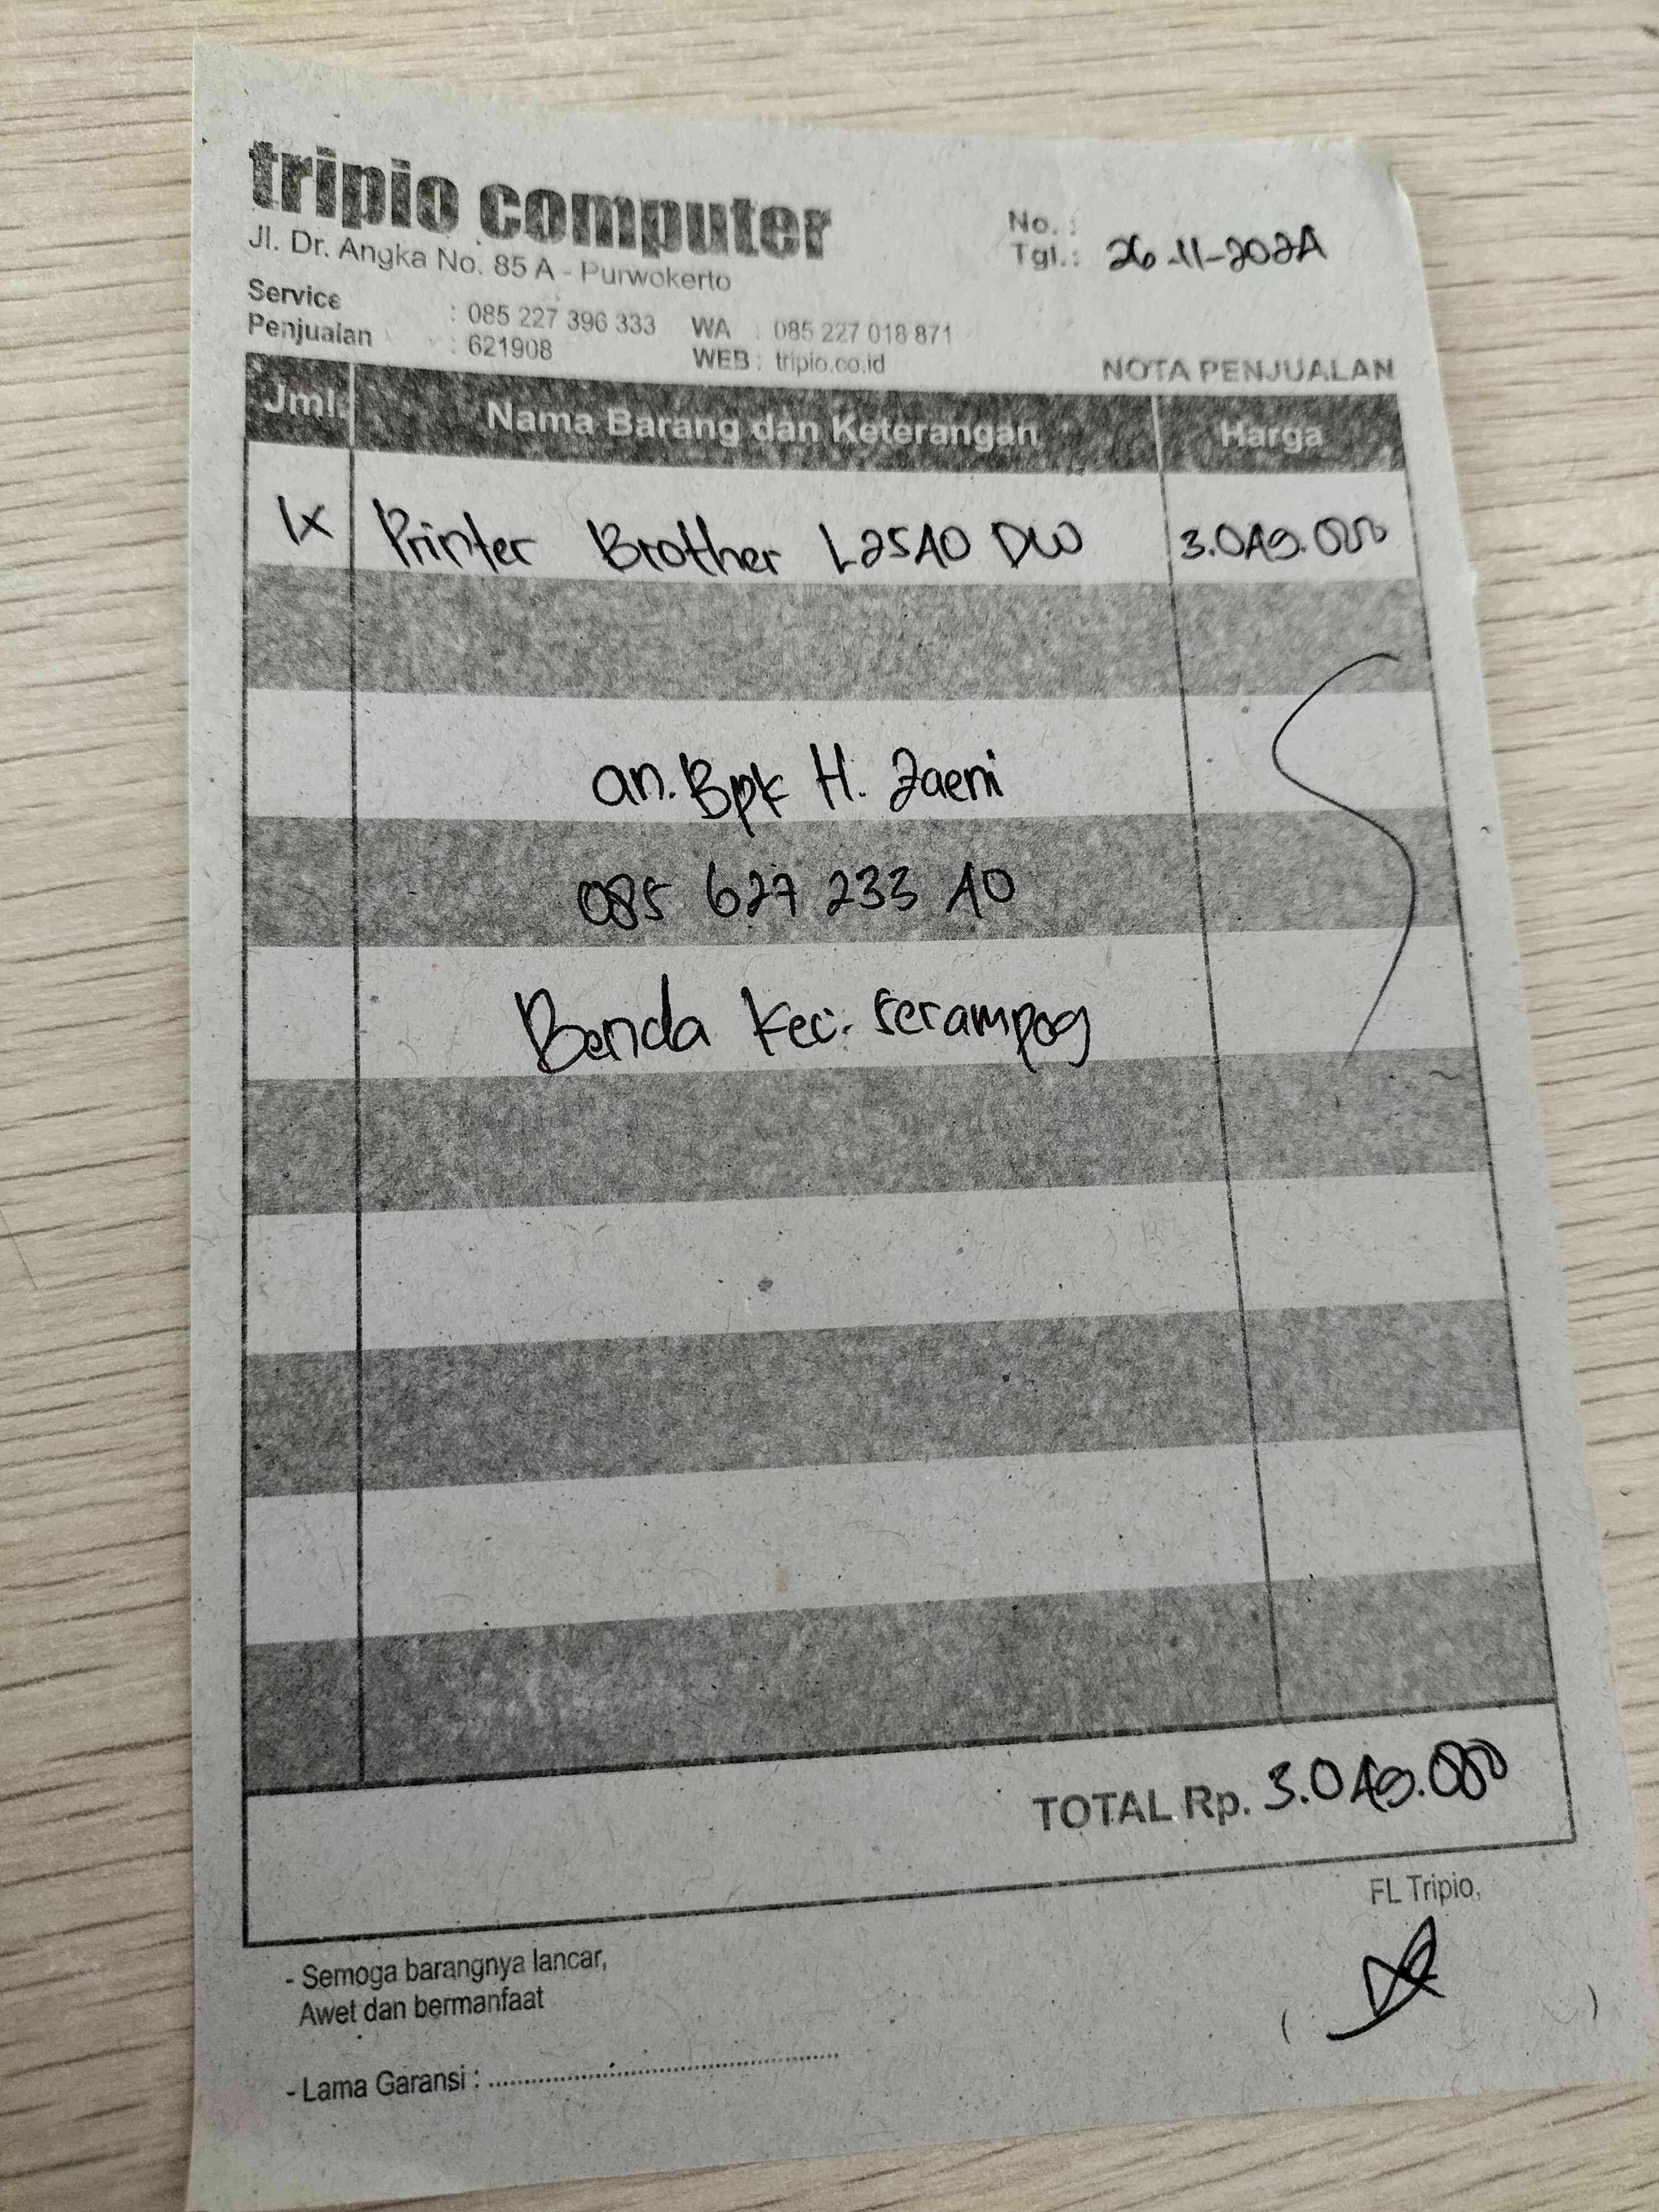 tripio computer
Jl. Dr. Angka No. 85 A - Purwokerto
No. :
Tgl. : 26-11-2024
Service : 085 227 396 333 WA : 085 227 018 871
Penjualan : 621908 WEB : tripio.co.id
NOTA PENJUALAN
Jml. Nama Barang dan Keterangan Harga
1x Printer Brother L2540 DW 3.049.000
an. Bpk H. Zaeni
085 627 233 40
Benda Kec. Serampog
TOTAL Rp. 3.049.000
FL Tripio,
- Semoga barangnya lancar,
Awet dan bermanfaat
( )
- Lama Garansi : ................................................